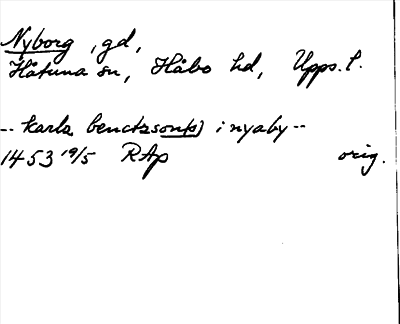 Nyborg, gd,
Håtuna sn, Håbo hd, Upps. l.
-- karla benctsson(s) i nyaby --
1453 19/5 RAp orig.